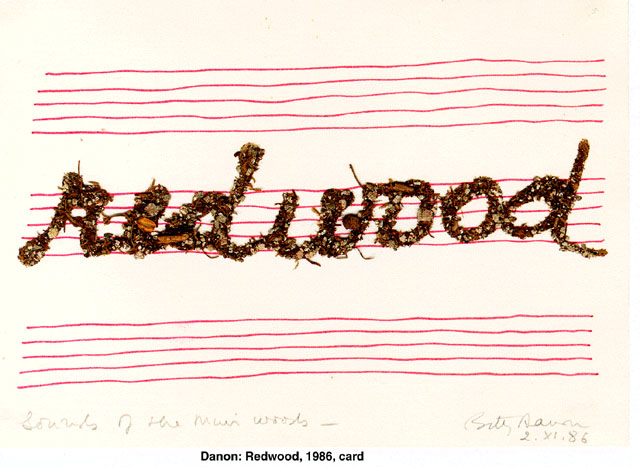 redwood
Sounds of the Muir woods —
Betty Danon
2.XI.86
Danon: Redwood, 1986, card